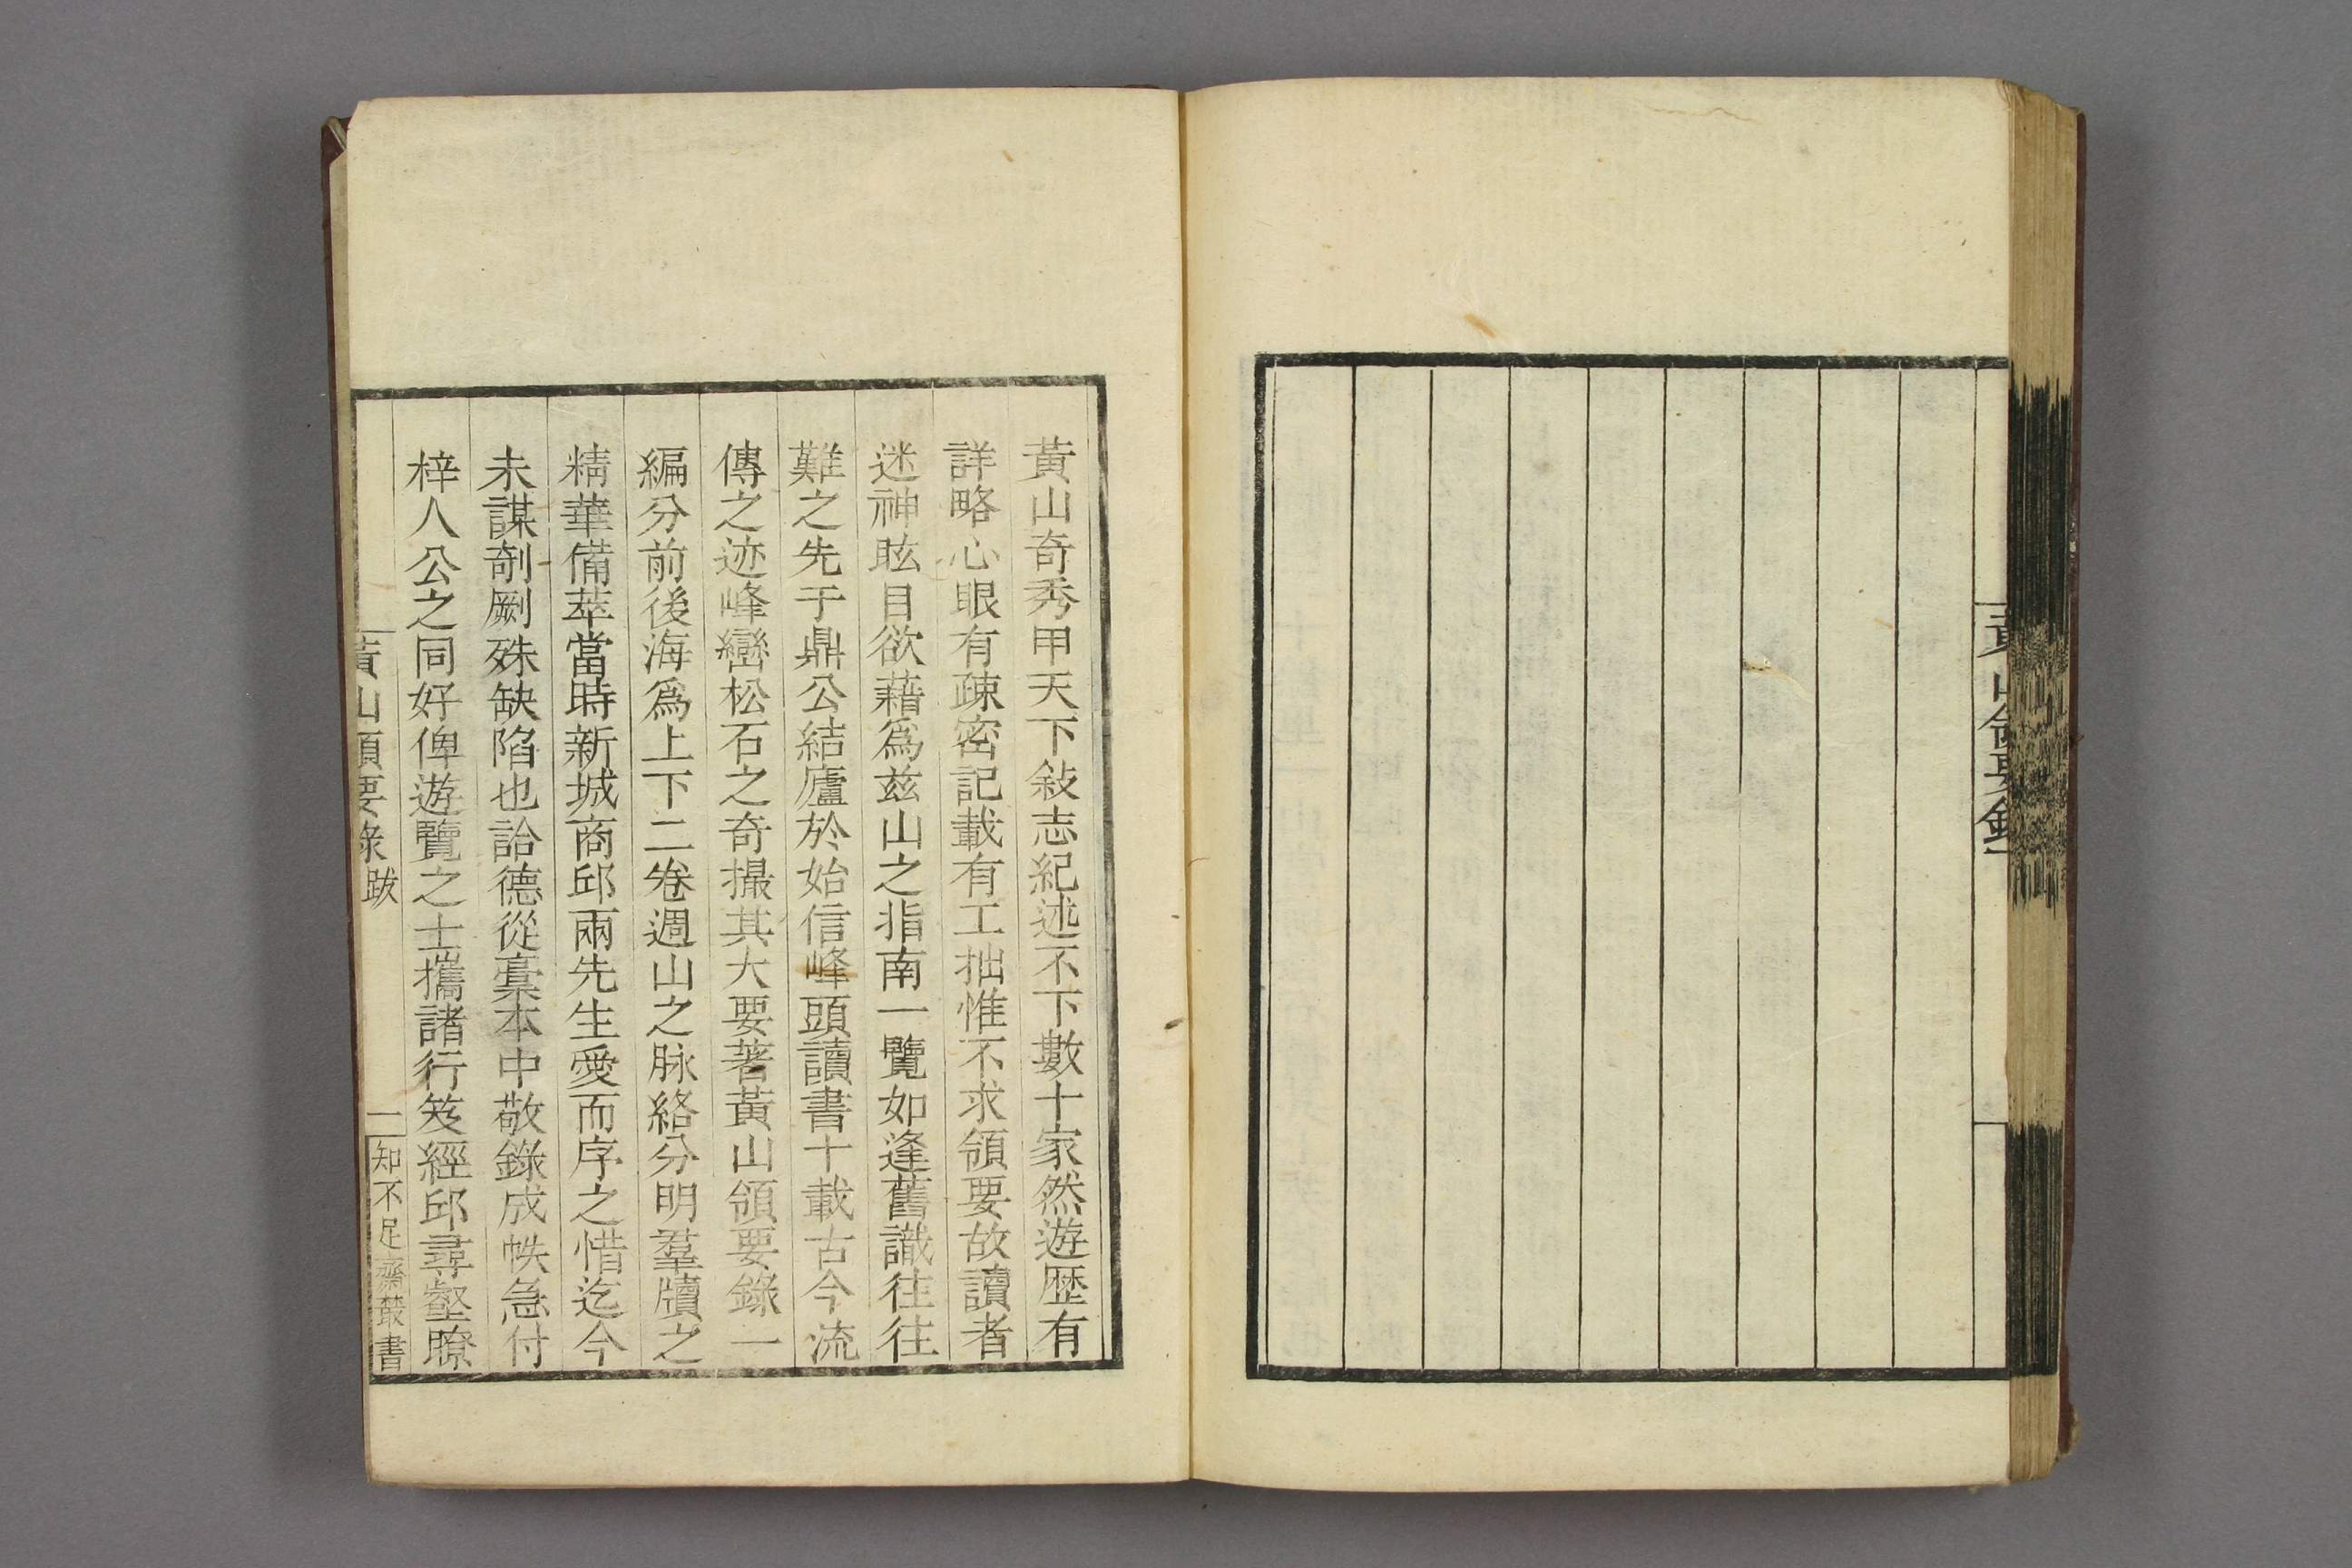 黃山領要錄
黃山奇秀甲天下敍志紀述不下數十家然遊歷有
詳略心眼有疎密記載有工拙惟不求領要故讀者
迷神眩目欲藉爲兹山之指南一覽如逢舊識往往
難之先于鼎公結廬於始信峰頭讀書十載古今流
傳之迹峰巒松石之奇撮其大要著黃山領要錄一
編分前後海爲上下二卷週山之脉絡分明羣牘之
精華備萃當時新城商邱兩先生愛而序之惜迄今
未謀剞劂殊缺陷也詒德從藁本中敬錄成帙急付
梓人公之同好俾遊覽之士攜諸行笈經邱尋壑瞭
黃山領要錄跋
一
知不足齋叢書